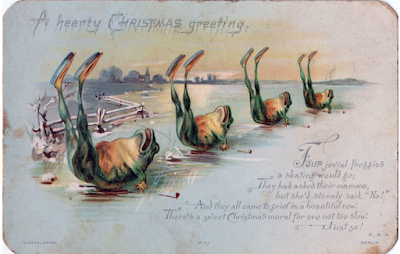 A hearty CHRISTMAS greeting,
Four jovial froggies
a skating would go;
They had asked their mamma,
but she'd sternly said, "No!"
And they all came to grief in a beautiful row.
There's a sweet Christmas moral for one not too slow.
Just so!
BERLIN.